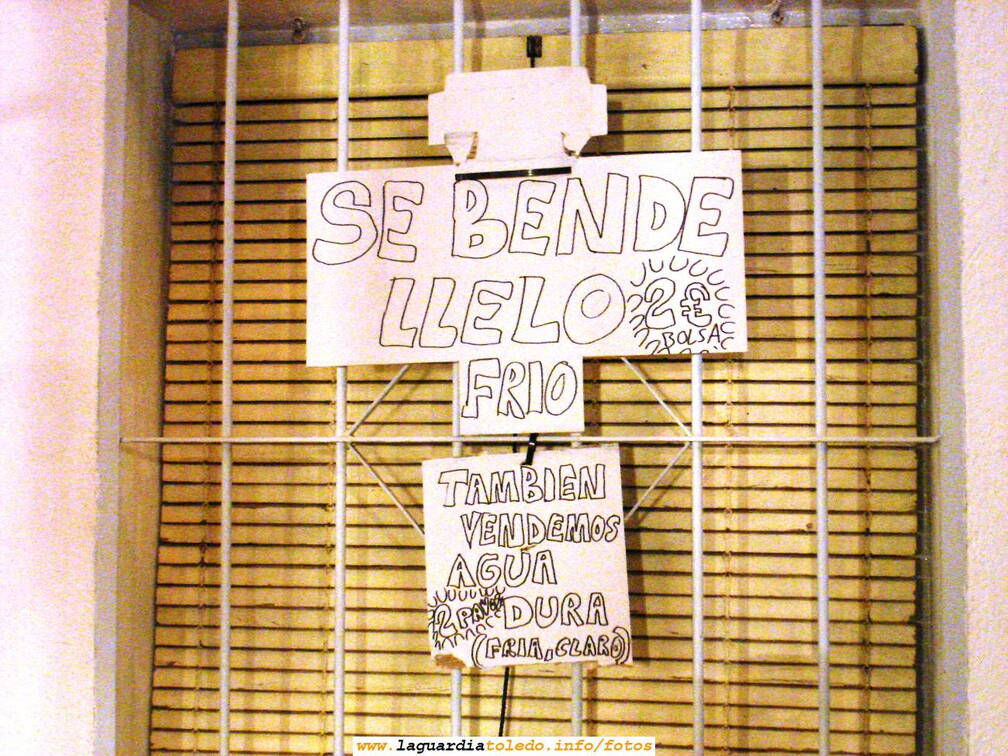 SE BENDE
LLELO
2€
BOLSA
FRIO
TAMBIEN
VENDEMOS
AGUA
2 PAVOS
DURA
(FRIA, CLARO)
www.laguardiatoledo.info/fotos